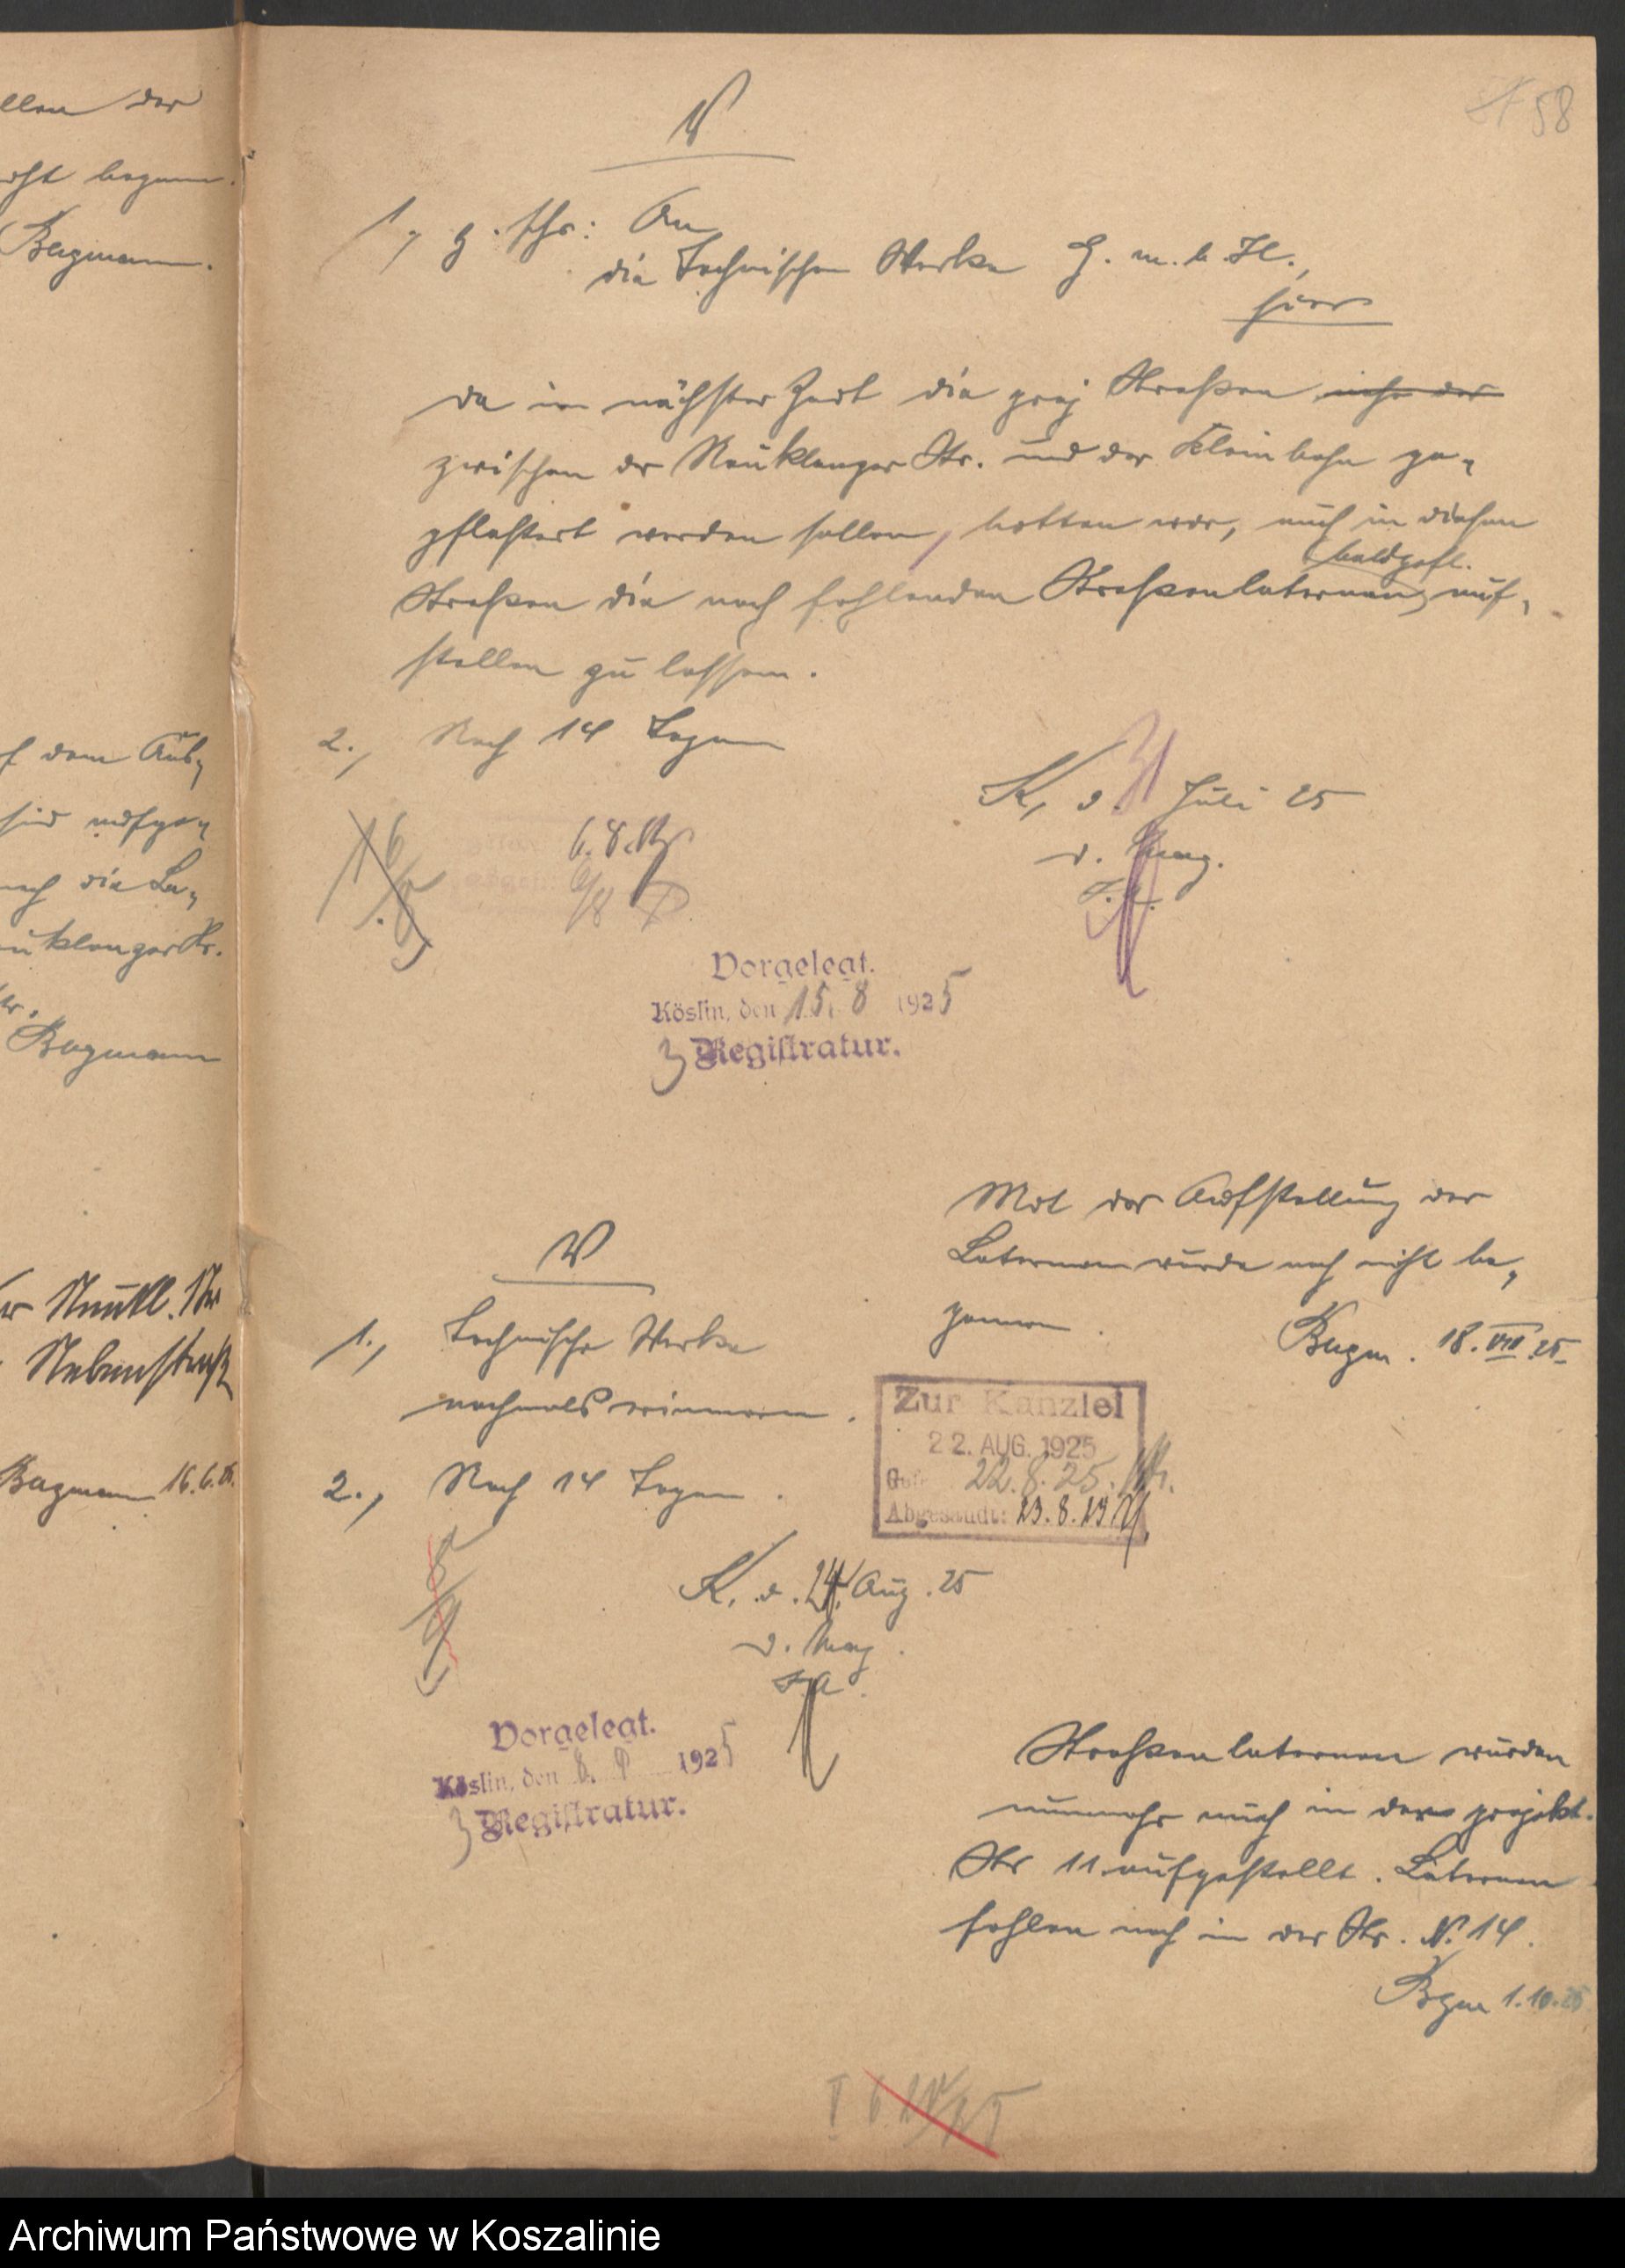 58
V
1., g. Schr: An
die Technischen Werke G. m. b. H.,
hier
Da in nächster Zeit die proj Straßen
zwischen der Neuklenzer Str. und der Kleinbahn ge-
pflastert werden sollen, bitten wir, auch in diesen
baldgefl.
Straßen die noch fehlenden Straßenlaternen auf-
stellen zu lassen.
2., Nach 14 Tagen
K, d. 31 Juli 25
d. Mag.
J. A.
6.8.
6/8
Vorgelegt.
Köslin, den 15. 8 1925
Registratur.
Mit der Aufstellung der
Laternen wurde noch nicht be-
gonnen.
Bagm. 18. VIII 25.
V
1., Technische Werke
nochmals erinnern.
2., Nach 14 Tagen.
Zur Kanzlei
22. AUG. 1925
22.8.25.
Abgesandt: 23.8.25
K. d. 21. Aug. 25
d. Mag.
J. A.
Vorgelegt.
Köslin, den 8. 9 1925
Registratur.
Straßenlaternen wurden
nunmehr auch in der projekt.
Str 11 aufgestellt. Laternen
fehlen noch in der Str. N. 14.
Bgm 1.10.25
llen der
cht begonn.
Bagmann.
f dem Aus-
sind aufge-
noch die La-
euklenzer Str.
Str.
Bagmann
er Neukl. Str
Nebenstraß
Bagmann 16.6.25.
Archiwum Państwowe w Koszalinie